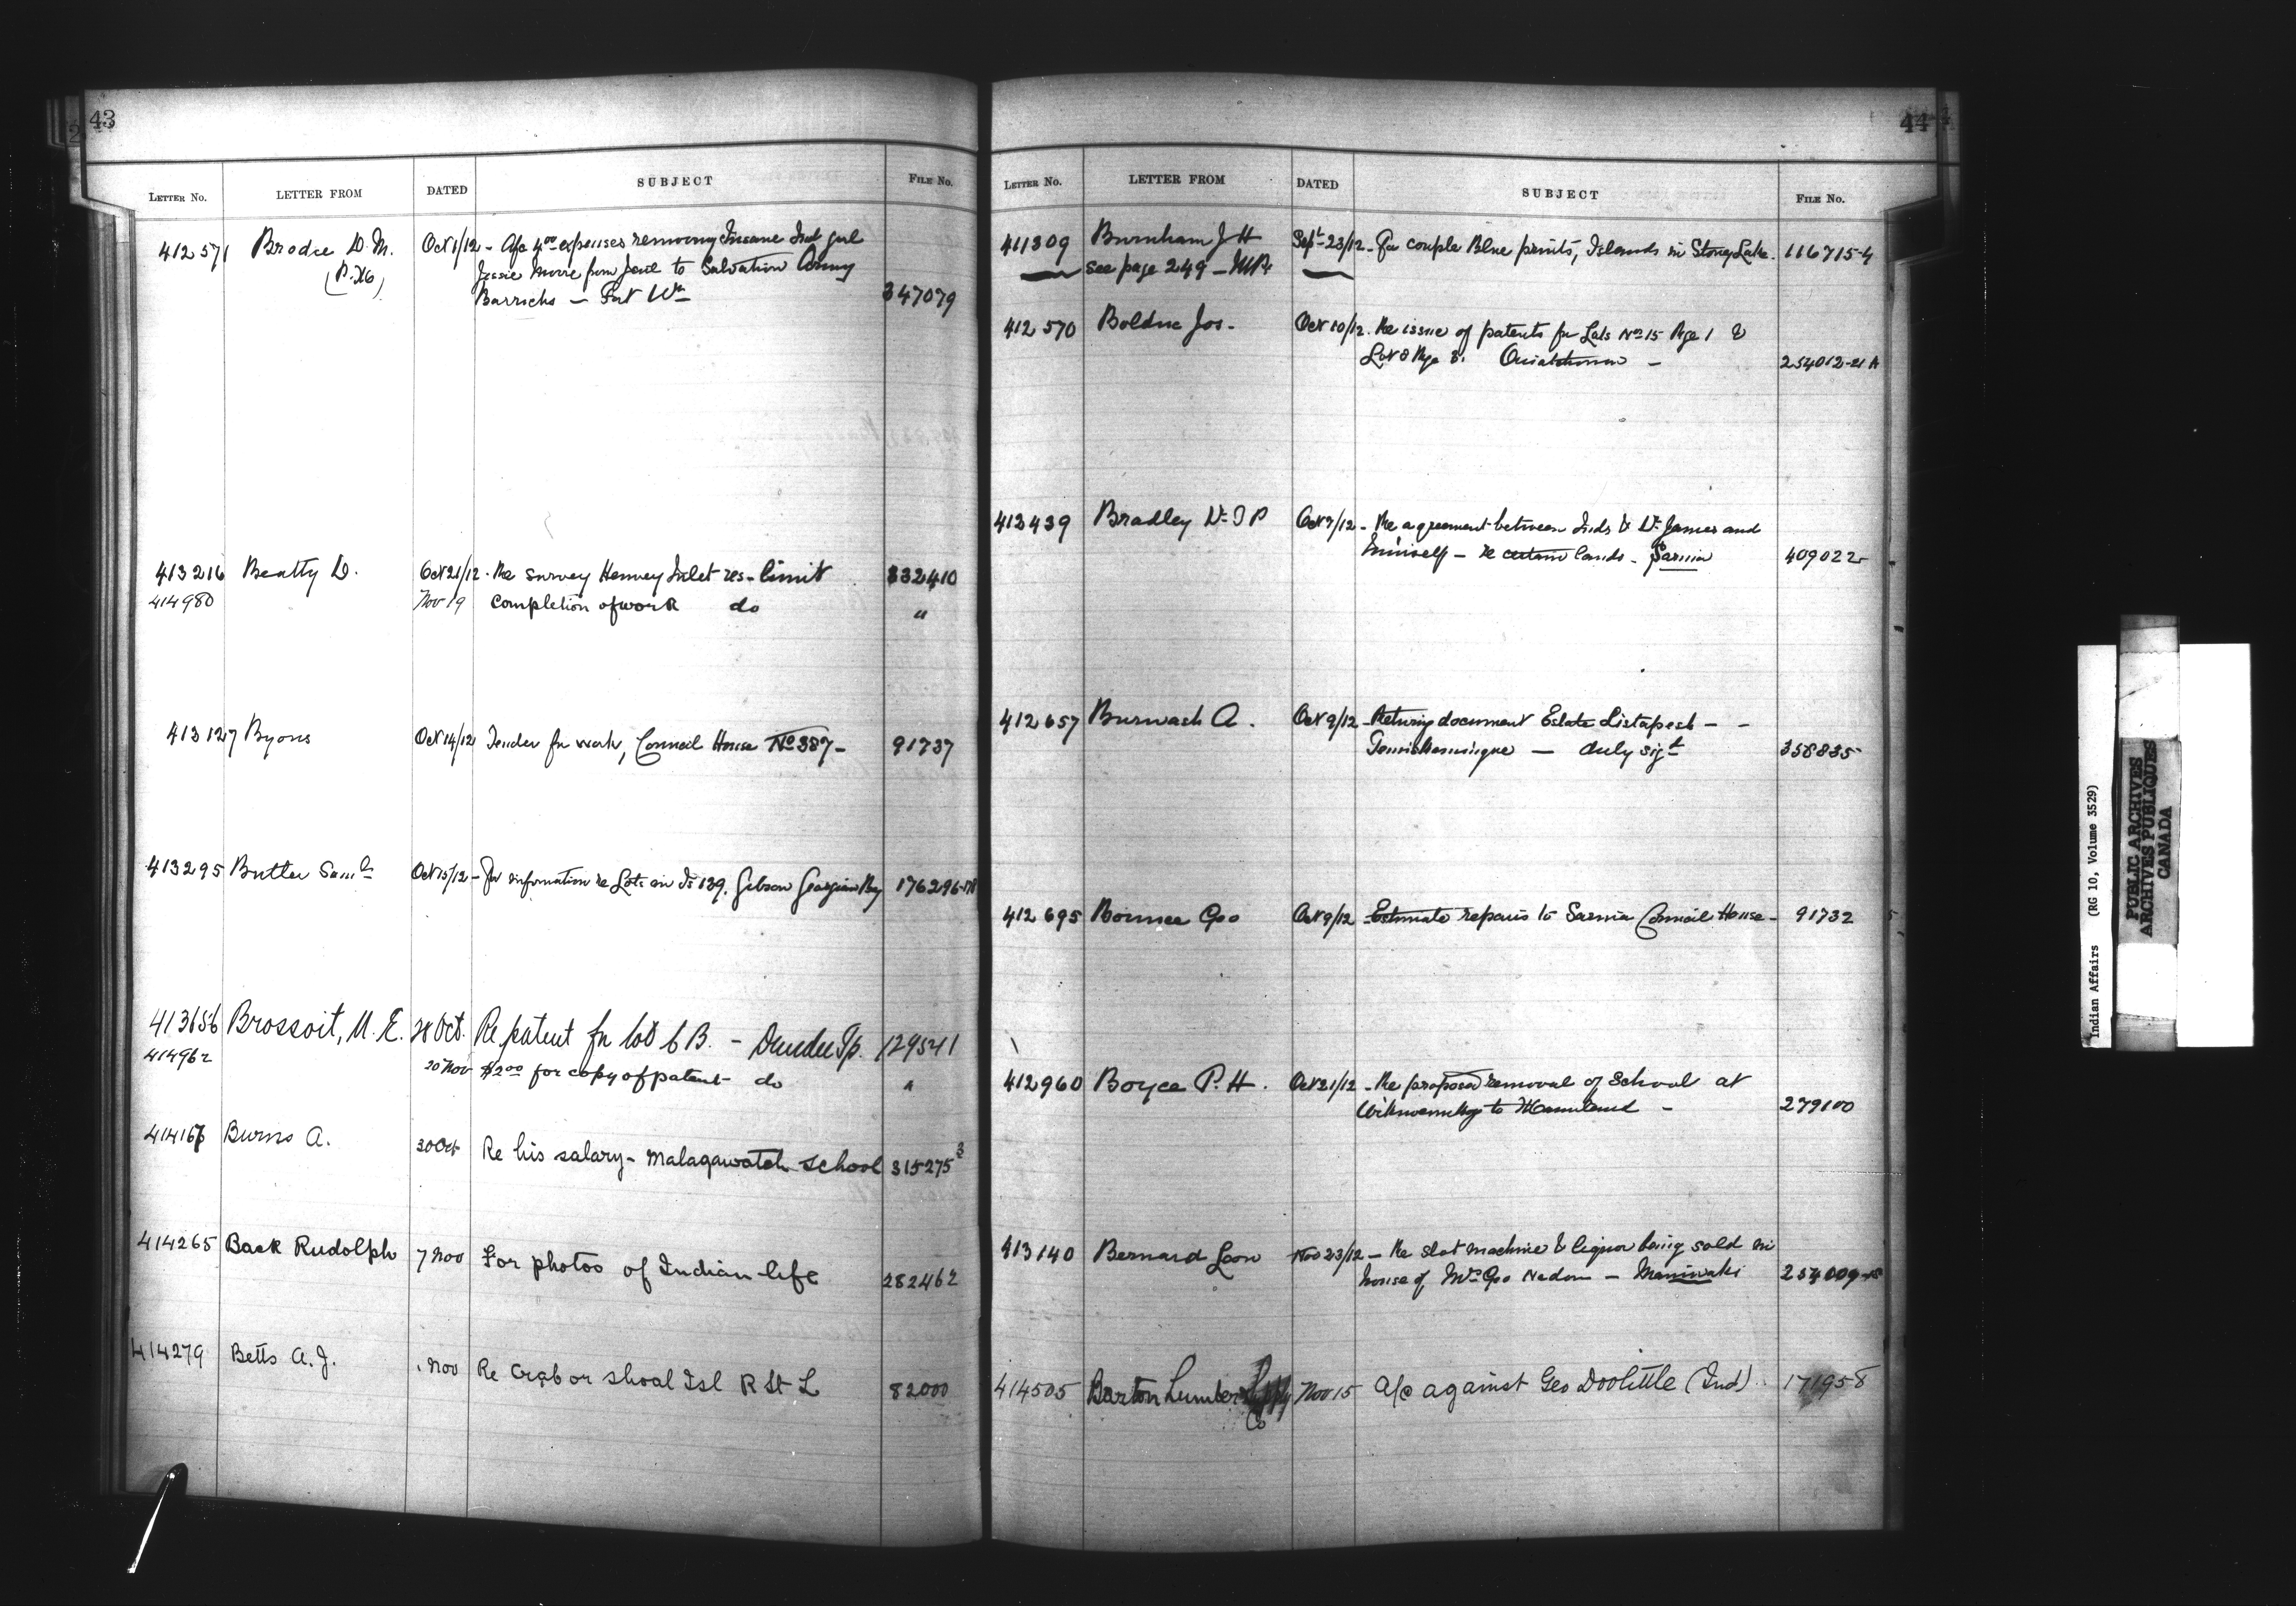 43
LETTER No. LETTER FROM DATED SUBJECT FILE No.
412571 Brodie D. M. Oct 1/12 - A/c 4.00 expenses removing Insane Ind girl
(P. Mag) Jessie from Jail to Salvation Army
Barracks — Fort Wm 347079
413216 Beatty D. Oct 21/12 - Re survey Henvey Inlet res- limit 332410
414980 Nov 19 Completion of work do "
413127 Byons Oct 14/12 Tender for work, Council House No 387 - 91737
413295 Butler Saml Oct 15/12 - For information re Lots on Is 139, Gibson Georgian Bay 176296-
413656 Brossoit, M. E. 28 Oct. Re patent for lot 6 B. - Dundee Tp. 129541
414962 20 Nov $2.00 for copy of patent do "
414167 Burns A. 30 Oct Re his salary - Malagawatch School 315275 3
414265 Baak Rudolph 7 Nov For photos of Indian life 282462
414279 Betts A. J. 1 Nov Re Crab or shoal Isl R St L 82000
44
LETTER No. LETTER FROM DATED SUBJECT FILE No.
411309 Burnham J H Sept 23/12 - For couple Blue prints, Islands in Stoney Lake. 116715-4
see page 249 - M.P.
412570 Bolduc Jos. Oct 10/12. Re issue of patents for Lots No 15 Rge 1 &
Lot 8 Rge 3. Ouiatchouan - 254012-21 A
412439 Bradley W. T P Oct 7/12 - Re agreement between Inds & W. James and
himself - re certain lands - Sarnia 409022
412657 Burwash A. Oct 9/12 - Returng document Estate Listapesh - -
Temiskamingue — duly sigd 358835
412695 Bonnee Geo Oct 9/12 - Estimate repairs to Sarnia Council House - 91732
412960 Boyce P. H. Oct 21/12 - Re proposed removal of School at
Wikwemikong to Mainland - 279100
413140 Bernard Leon Nov 23/12 - Re slot machine & liquor being sold in
house of Mrs Geo Nadon - Maniwaki 254009-
414505 Barton Lumber Co Nov 15 A/c against Geo Doolittle (Ind). 171958
Indian Affairs (RG 10, Volume 3529)
PUBLIC ARCHIVES
ARCHIVES PUBLIQUES
CANADA